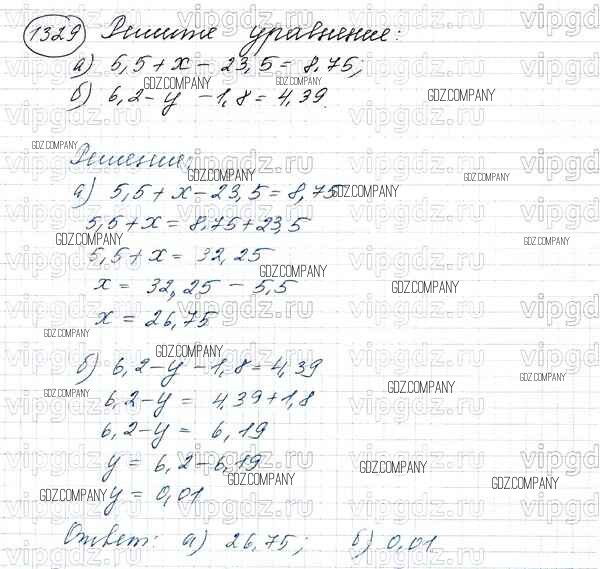 1329 Решите уравнение:
а) 5,5 + x - 23,5 = 8,75;
б) 6,2 - y - 1,8 = 4,39.
Решение:
а) 5,5 + x - 23,5 = 8,75
5,5 + x = 8,75 + 23,5
5,5 + x = 32,25
x = 32,25 - 5,5
x = 26,75
б) 6,2 - y - 1,8 = 4,39
6,2 - y = 4,39 + 1,8
6,2 - y = 6,19
y = 6,2 - 6,19
y = 0,01
Ответ: а) 26,75; б) 0,01
vipgdz.ru
GDZ.COMPANY